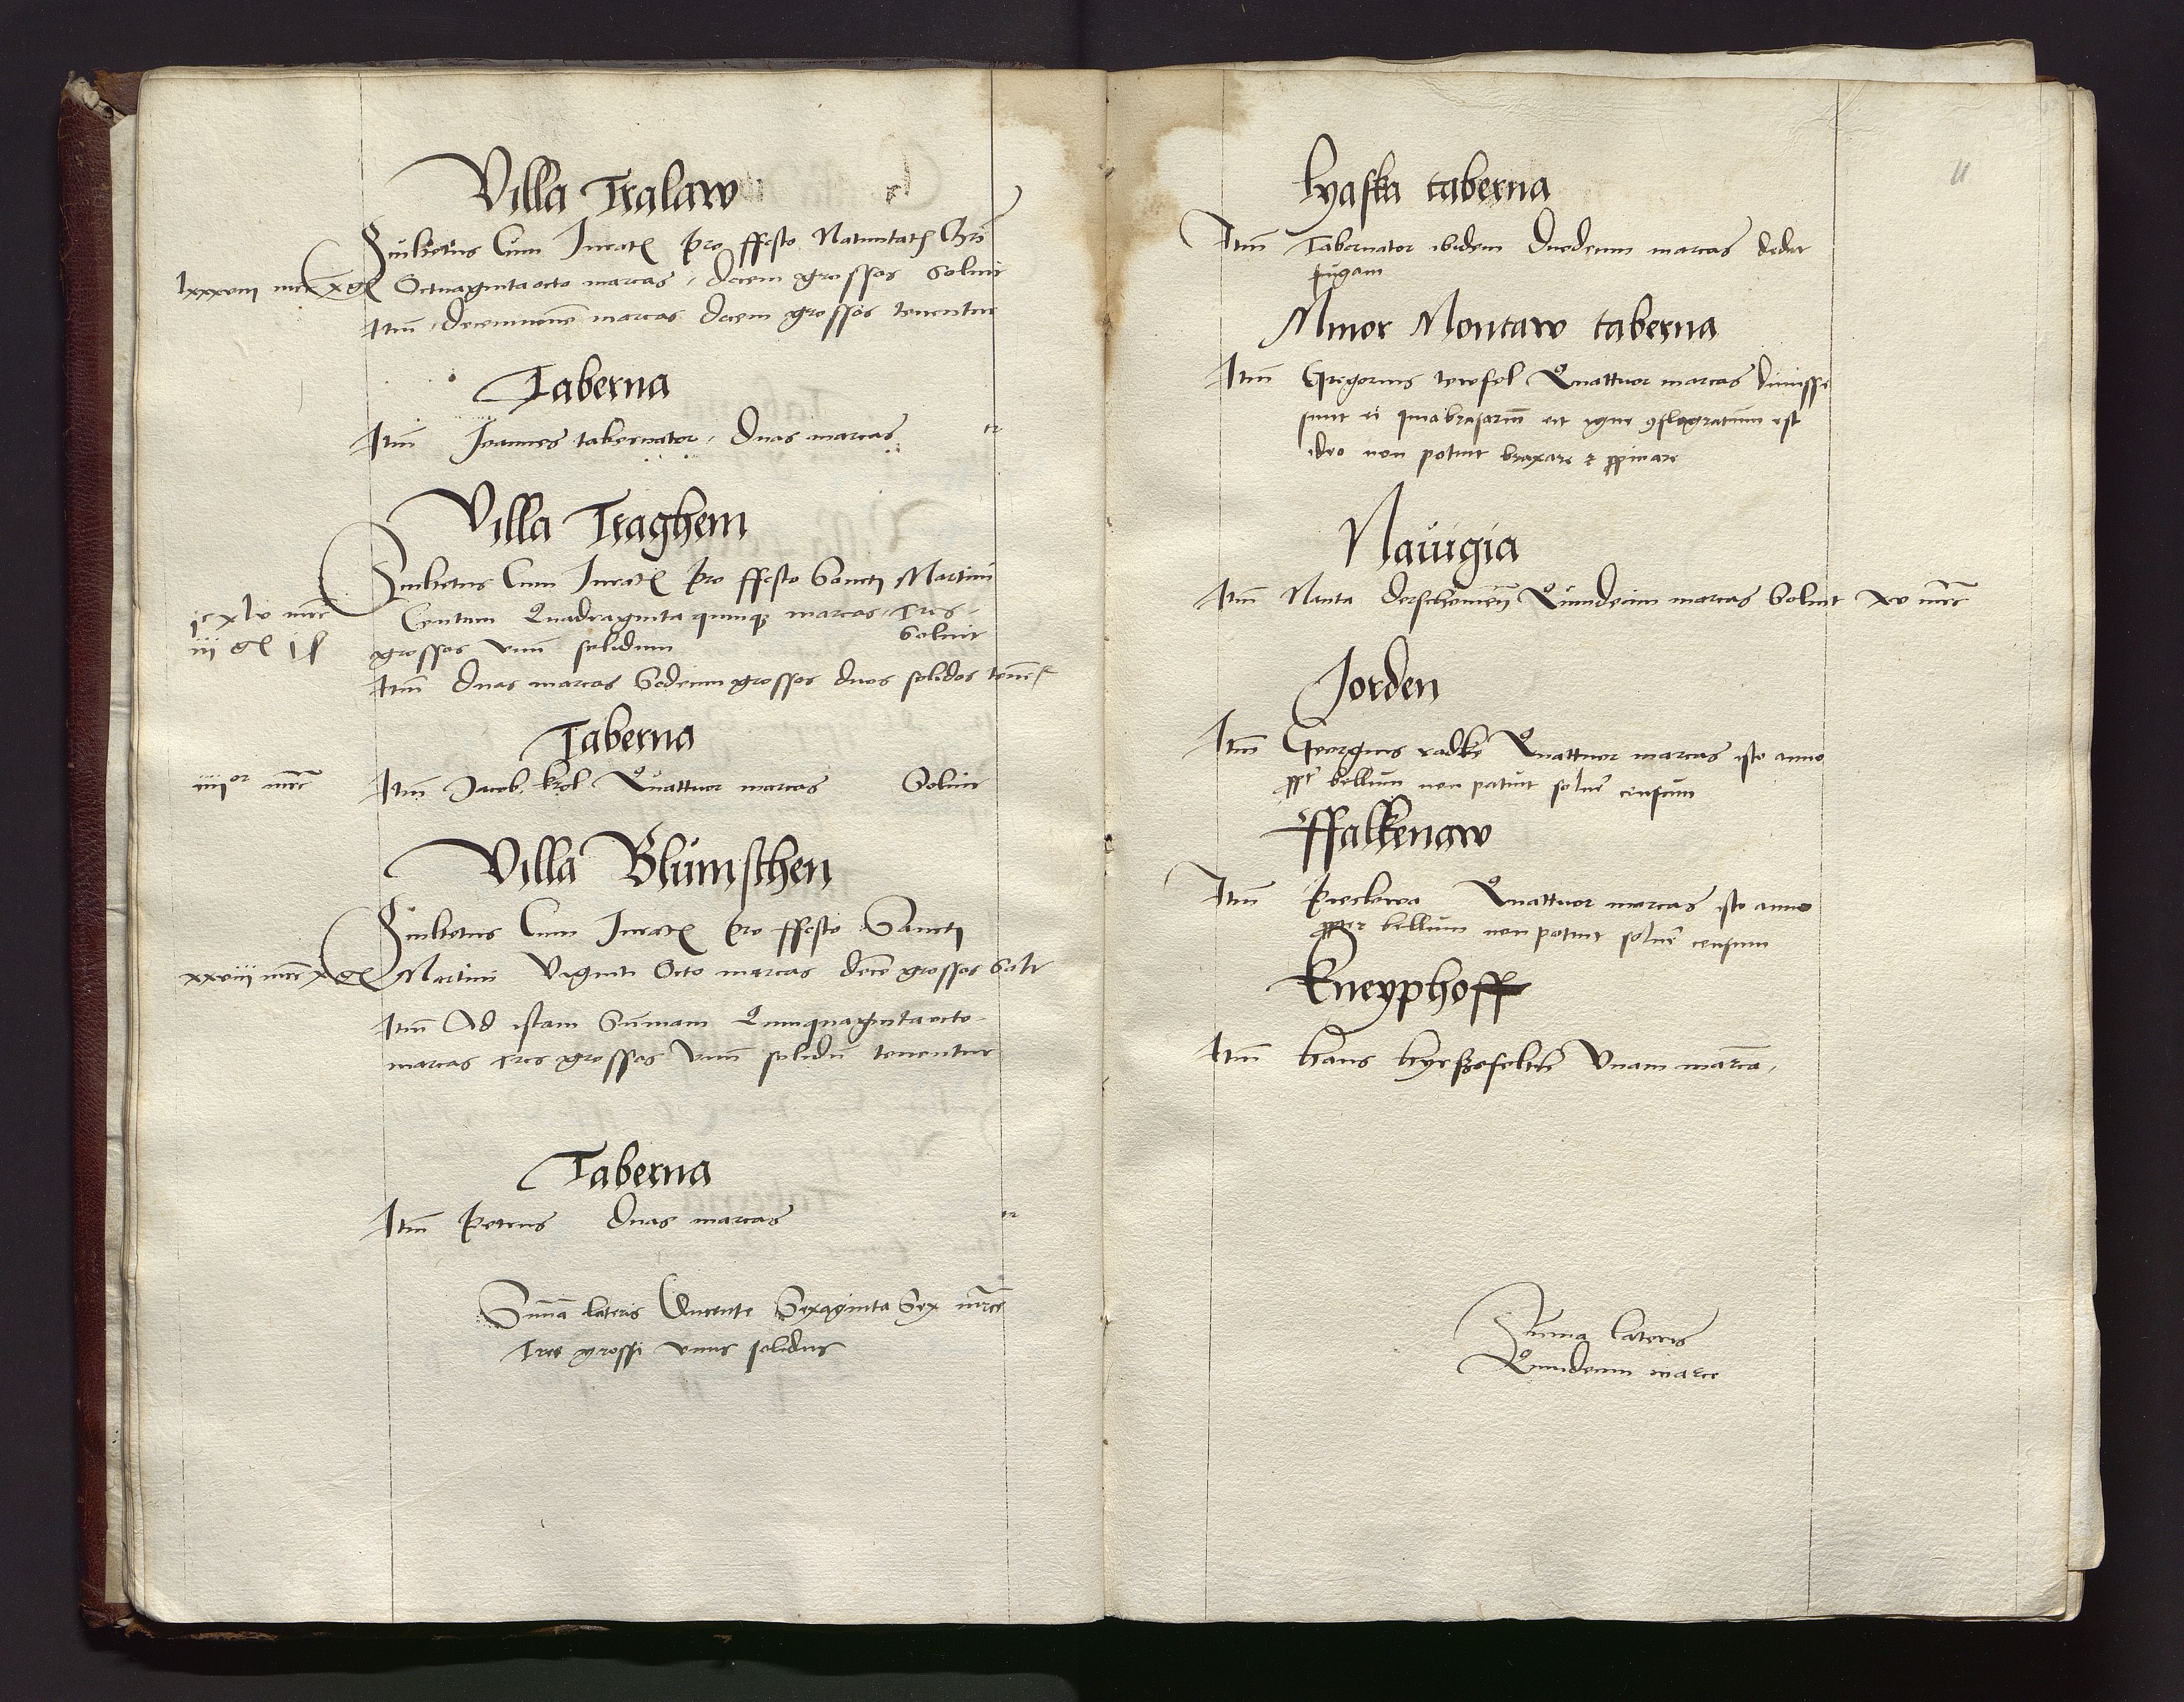 Villa Tralaw
Scultetus Cum Iurat pro ffesto Natiuitat Cri
lxxxviii mrc x g Octuaginta octo marcas, Decem grossos Soluit
Itm, decemnoue marcas decem grossos tenentur
Taberna
Itm Joannes tabernator, Duas marcas tr
Villa Traghem
Scultetus Cum Iurat pro ffesto Sancti Martini
jc xlv mrc Centum Quadraginta quinq marcas, Tres,
iii g i s grossos vnu solidum Soluit
Itm Duas marcas Sedecim grossos duos solidos tenet
Taberna
iiiior mrc Itm Jacob krol Quattuor marcas Soluit
Villa Blumschen
Scultetus Cum Iurat pro ffesto Sancti
xxviii mrc x g Martini Viginti Octo marcas dece grossos Solt
Itm Ad istam Sumam Quinquaginta octo
marcas tres grossos Vnu solidu tenentur
Taberna
Itm Petrus Duas marcas tr
Suma lateris Ducente Sexaginta Sex mrce
Tres grossi vnus solidus
11
lyaska taberna
Itm Tabernator ibidem Duodecim marcas dedit
fugam
Minor Montaw taberna
Itm Gregorius tewfel Quattuor marcas dimisse
sunt ei quia brasariu eit igne 9flagratum est
ideo non potuit braxare z ppinare
Nauigia
Itm Nauta derschouien Quindecim marcas Soluit xv mrc
Jorden
Itm Georgius radke Quattuor marcas isto anno
ppt bellum non potuit solue censum
Ffalkenaw
Itm Preckwa Quattuor marcas isto anno
ppter bellum non potuit solue censum
Kneyphoff
Itm hans Vnam marca,
Suma lateris
Quindecim marce